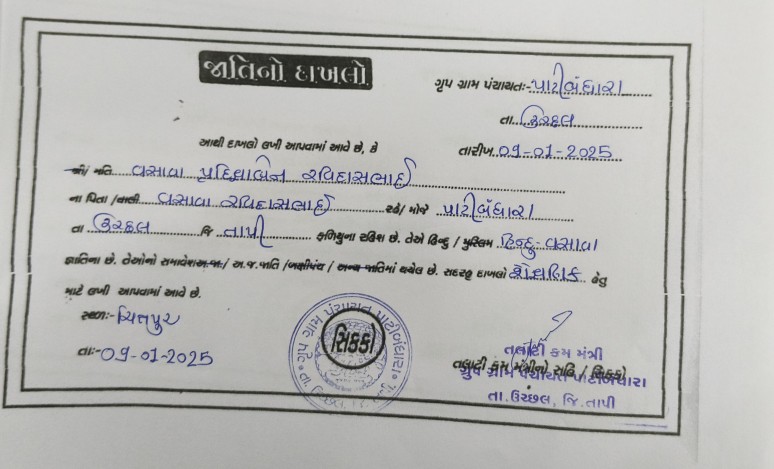 જાતિનો દાખલો
ગૃપ ગ્રામ પંચાયતઃ- પાટીબંધારા
તા. ઉચ્છલ
આથી દાખલો લખી આપવામાં આવે છે, કે
તારીખ 09-01-2025
શ્રી/મતિ વસાવા રવિદાસભાઈ
ના પિતા /વાલી વસાવા રવિદાસભાઈ રહે/ મોજે પાટીબંધારા
તા ઉચ્છલ જિ તાપી ના રહિશ છે. તેઓ હિન્દુ / મુસ્લિમ હિન્દુ-વસાવા
જ્ઞાતિના છે. તેઓનો સમાવેશ અ.જા./ અ.જ.જાતિ /બક્ષીપંચ / અન્ય જાતિમાં થયેલ છે. સદરહુ દાખલો શૈક્ષણિક હેતુ
માટે લખી આપવામાં આવે છે.
સ્થળઃ-
તાઃ- 09-01-2025
ગૃપ ગ્રામ પંચાયત પાટીબંધારા
સિકકો
તલાટી કમ મંત્રી
તલાટી કમ મંત્રીની સહિ / સિકકો
ગૃપ ગ્રામ પંચાયત પાટીબંધારા
તા. ઉચ્છલ, જિ. તાપી